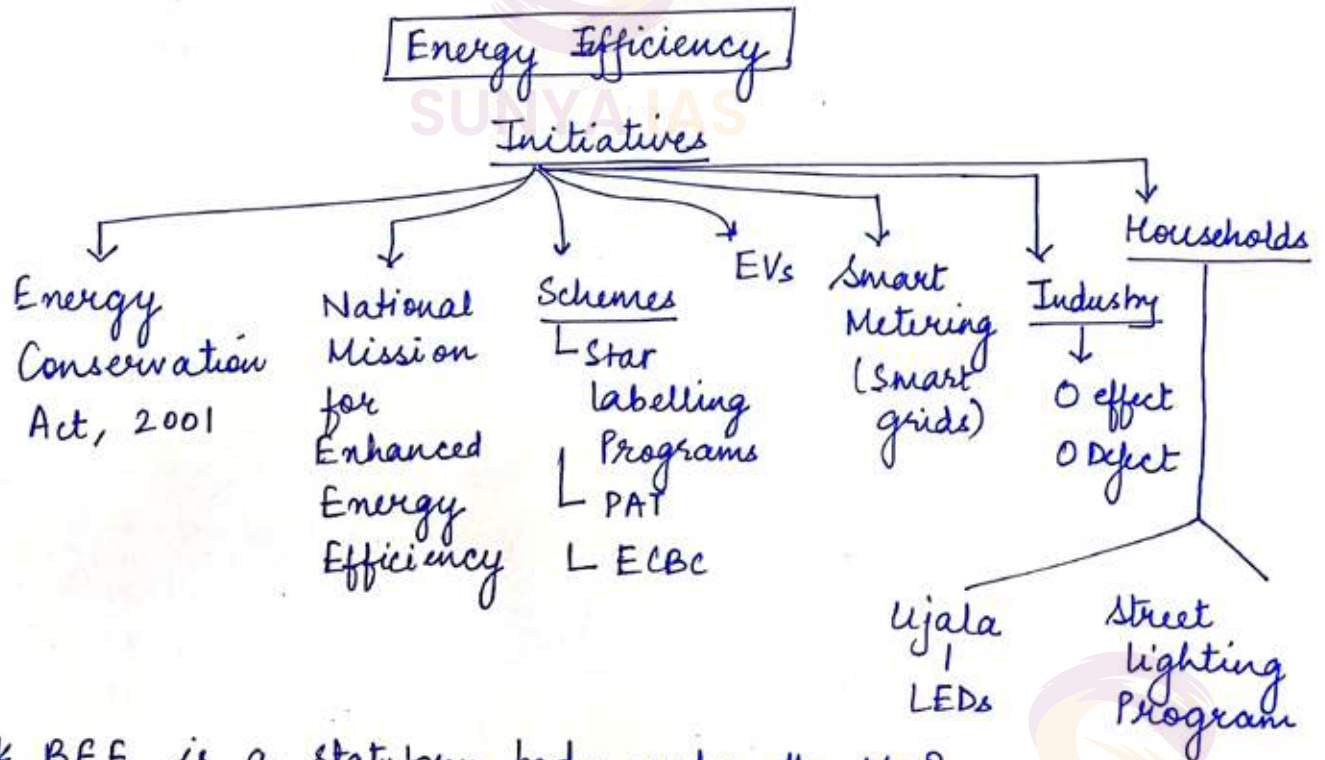 Energy Efficiency
SUNYA IAS
Initiatives
Energy
Conservation
Act, 2001
National
Mission
for
Enhanced
Energy
Efficiency
Schemes
Star
labelling
Programs
PAT
ECBC
EVs
Smart
Metering
(Smart
grids)
Industry
O effect
O Defect
Households
Ujala
LEDs
Street
lighting
Program
BEE is a statutory body under the